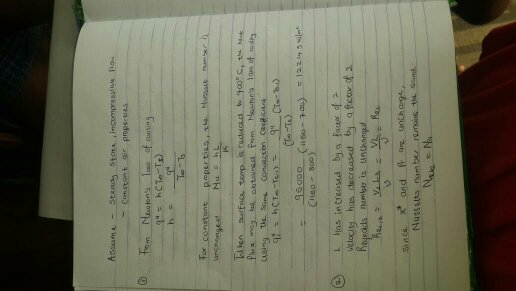 Assume - Steady state, incompressible flow
- Constant air properties.
① From Newton's law of cooling
q" = h(T∞-Ts)
h = q" / T∞-Ts
For constant properties, the Nusselt number is
unchanged Nu = hL / k
When surface temp is reduced to 700°C, the heat
flux may be obtained from Newton's law of cooling
Using the same convection coefficient
q" = h(T∞-Ts1) = q" / (T∞-Ts) (T∞-Ts1)
= 95000 / (1150-800) (1150-700) = 122143 W/m²
② L has increased by a factor of 2
Velocity has decreased by a factor of 2
Reynolds number is unchanged
ReL2 = V2L2 / υ = VL / υ = ReL
Since x* and Pr are unchange,
Nusselts number remains the same.
= Nu